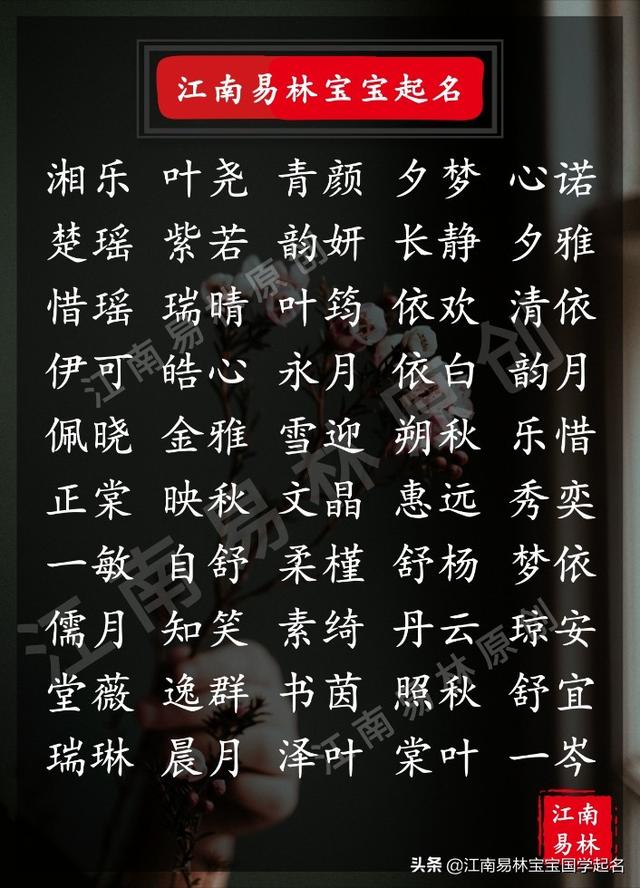 江南易林宝宝起名
湘乐 叶尧 青颜 夕梦 心诺
楚瑶 紫若 韵妍 长静 夕雅
惜瑶 瑞晴 叶筠 依欢 清依
伊可 皓心 永月 依白 韵月
佩晓 金雅 雪迎 朔秋 乐惜
正棠 映秋 文晶 惠远 秀奕
一敏 自舒 柔槿 舒杨 梦依
儒月 知笑 素绮 丹云 琼安
堂薇 逸群 书茵 照秋 舒宜
瑞琳 晨月 泽叶 棠叶 一岑
江南易林原创
江南易林原创
江南易林原创
江南
易林
头条 @江南易林宝宝国学起名